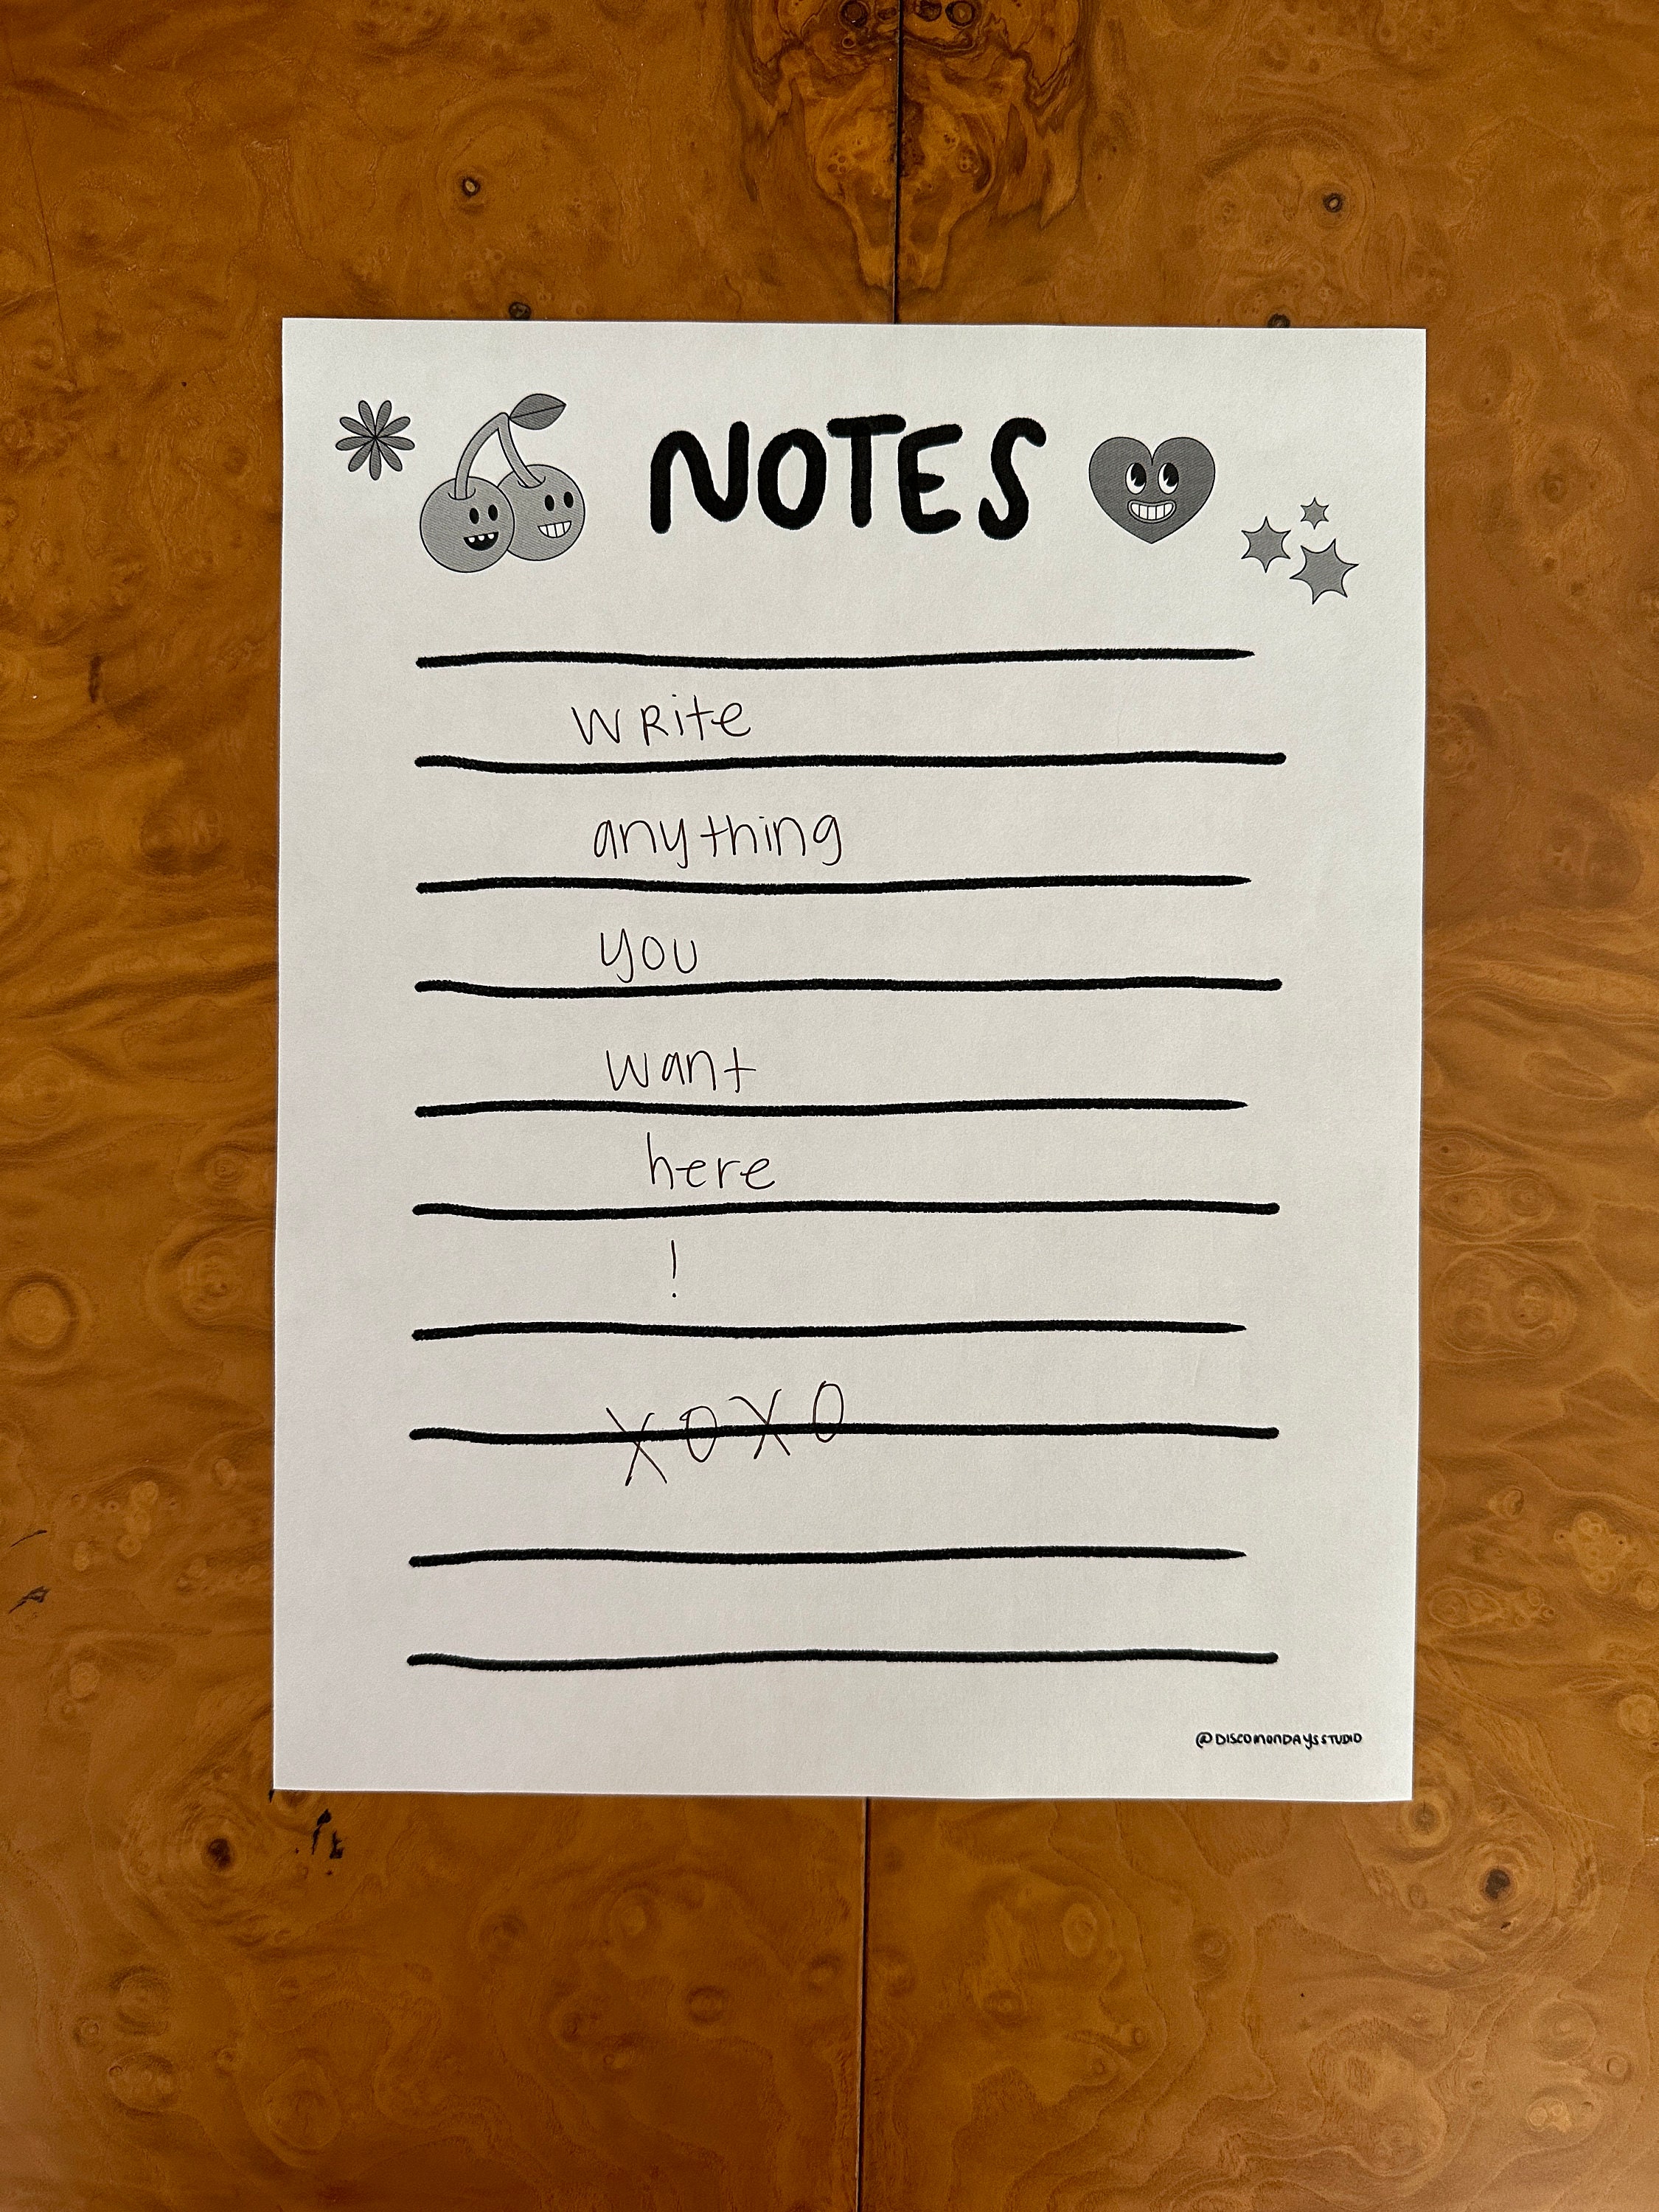 NOTES
WRite
anything
you
want
here
!
XOXO
@DISCOMONDAYSSTUDIO